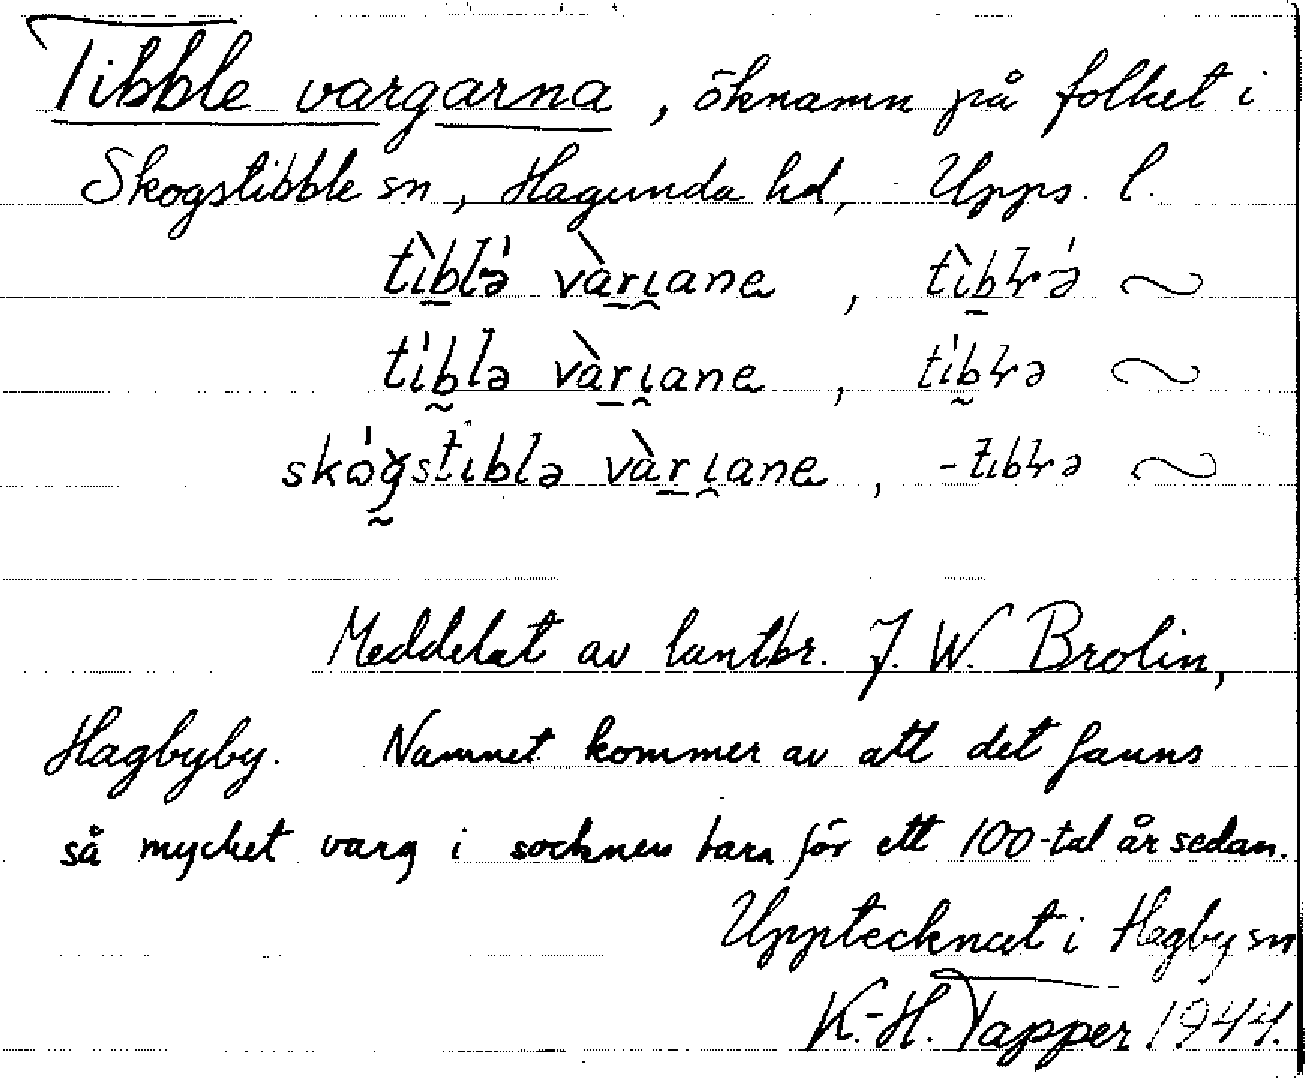 Tibble vargarna, öknamn på folket i
Skogstibble sn, Hagunda hd, Upps. l.
tìblə́ vàrɩane, tìbłə́ ~
tíblə vàrɩane, tíbłə ~
skógstiblə vàrɩane, -tɩbłə ~
Meddelat av lantbr. J. W. Brolin,
Hagbyby. Namnet kommer av att det fanns
så mycket varg i socknen bara för ett 100-tal år sedan.
Upptecknat i Hagby sn
K.-H. Tapper 1944.